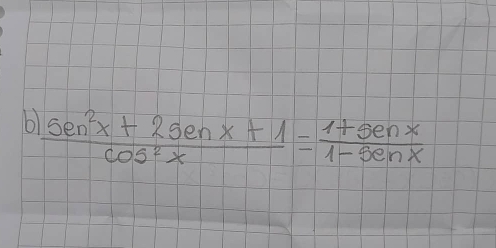 b) sen²x + 2senx + 1 / cos²x = 1+senx / 1-senx